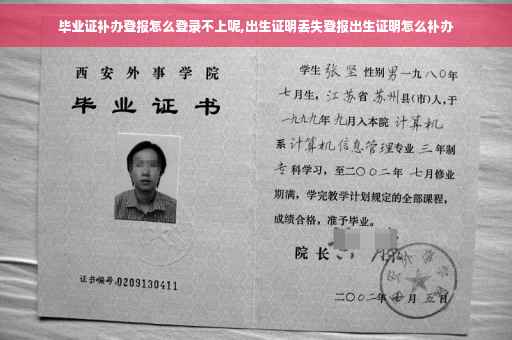 毕业证补办登报怎么登录不上呢,出生证明丢失登报出生证明怎么补办
西安外事学院
毕业证书
证书编号:0209130411
学生 张坚 性别男一九八〇年
七月生，江苏省苏州县(市)人,于
一九九九年九月入本院 计算机
系 计算机信息管理专业 三 年制
专科学习，至二〇〇二年 七月修业
期满，学完教学计划规定的全部课程，
成绩合格，准予毕业。
院长
二〇〇二年 七 月 五 日